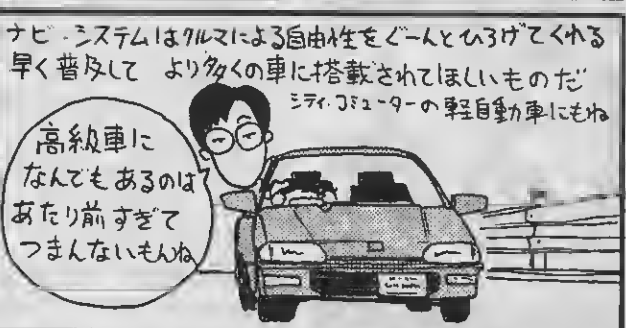 ナビ・システムはクルマによる自由性をぐーんとひろげてくれる
早く普及して より多くの車に搭載されてほしいものだ
シティ・コミューターの軽自動車にもね
高級車に
なんでもあるのは
あたり前すぎて
つまんないもんね